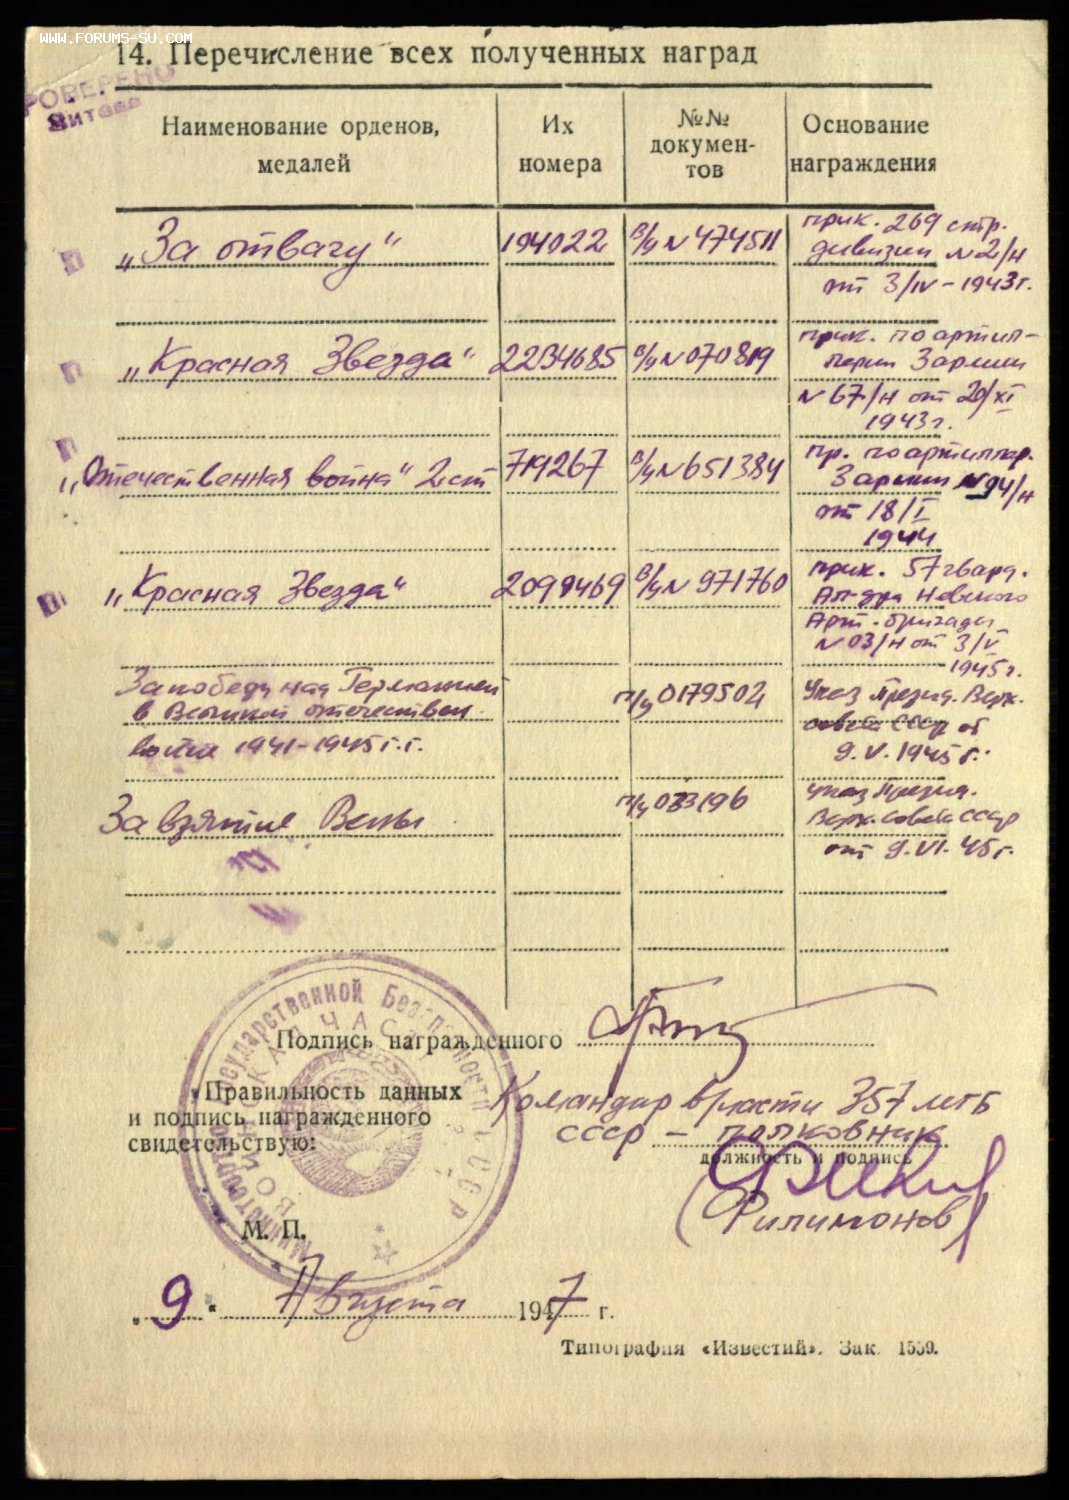 WWW.FORUMS-SU.COM
14. Перечисление всех полученных наград
ПРОВЕРЕНО
Наименование орденов, медалей
Их номера
№№ докумен-тов
Основание награждения
„За отвагу“ 194022 в/у № 474511 прик. 269 стр.
дивизии № 2/н
от 3/IV - 1943 г.
„Красная Звезда“ 2234685 в/у № 070819 прик. по артил-
лерии 3 армии
№ 67/н от 20/XI
1943 г.
„Отечественная война“ 2 ст 719267 в/у № 651384 пр. по артиллер.
3 армии № 94/н
от 18/I
1944
„Красная Звезда“ в/у № 971760 прик. 57 гвард.
Ал-дра Невского
Арт. бригады
№ 03/н от 3/V
1945 г.
За победу над Германией п/у 0179502 Указ Презид. Верх.
в Великой отечествен. совета СССР от
войне 1941-1945 г.г. 9.V.1945 г.
За взятие Вены указ Презид.
Верх. Совета СССР
от 9.VI.45 г.
Подпись награжденного
Правильность данных
и подпись награжденного
свидетельствую:
Командир в/части 357 МГБ
СССР - полковник
должность и подпись
(Филимонов
М. П.
Министерство Государственной Безопасности СССР
ВОЙСКАЯ ЧАСТЬ
„9“ Августа 1947 г.
Типография «Известий». Зак. 1559.